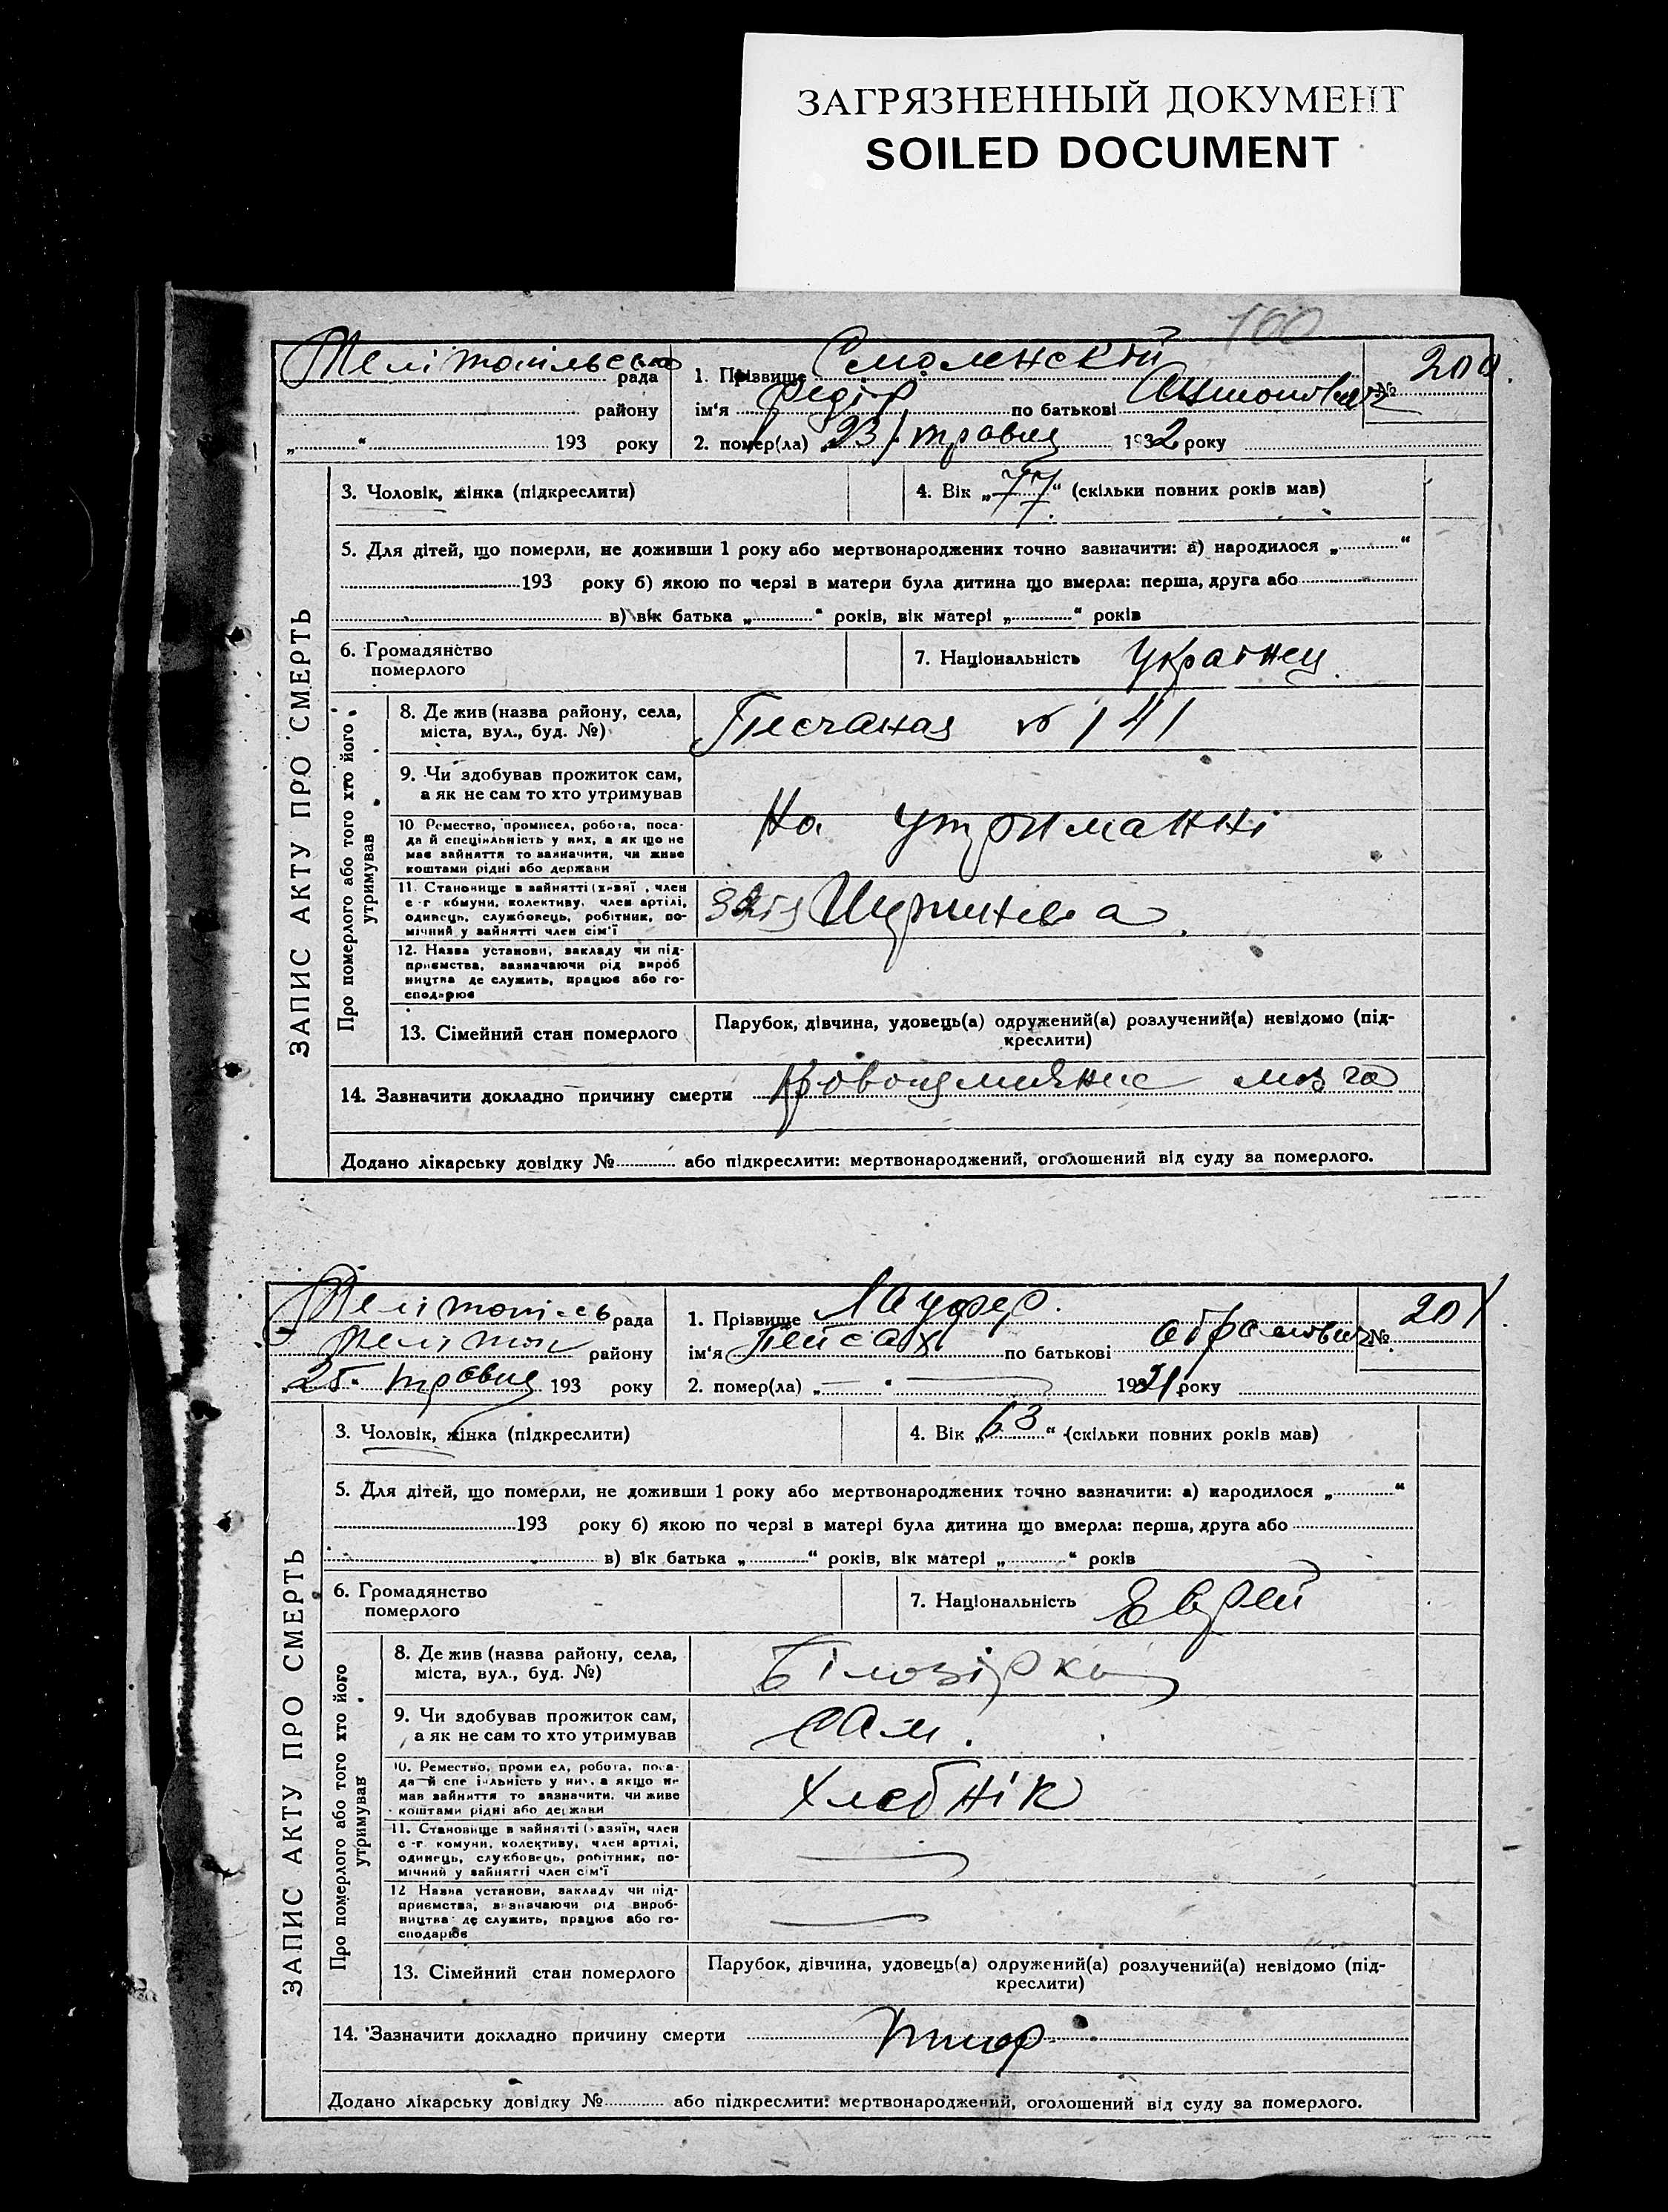 ЗАГРЯЗНЕННЫЙ ДОКУМЕНТ
SOILED DOCUMENT
100
Мелітопільська рада
району
„ “ 193 року
1. Прізвище Смоленскій
ім'я Федір по батькові Антонович
№ 200.
2. помер(ла) 23/ травня 1932 року
ЗАПИС АКТУ ПРО СМЕРТЬ
3. Чоловік, жінка (підкреслити)
4. Вік „77“ (скільки повних років мав)
5. Для дітей, що померли, не доживши 1 року або мертвонароджених точно зазначити: а) народилося „ “
193 року б) якою по черзі в матери була дитина що вмерла: перша, друга або
в) вік батька „ “ років, вік матері „ “ років
6. Громадянство
померлого
7. Національність Українец
Про померлого або того хто його
утримував
8. Де жив (назва району, села,
міста, вул., буд. №)
Песчаная № 141
9. Чи здобував прожиток сам,
а як не сам то хто утримував
На утриманні
10 Ремество, промисел, робота, поса-
да й спеціяльність у них, а як що не
мав зайняття то зазначити, чи живе
коштами рідні або держави
11. Становище в зайнятті (хазяї, член
с-г комуни, колективу, член артілі,
одинець, службовець, робітник, по-
мічний у зайнятті член сім'ї
12. Назва установи, закладу чи під-
приємства, зазначаючи рід вироб
ництва де служить, працює або го-
сподарює
13. Сімейний стан померлого
Парубок, дівчина, удовець(а) одружений(а) розлучений(а) невідомо (під-
креслити)
14. Зазначити докладно причину смерти мозга
Додано лікарську довідку № або підкреслити: мертвонароджений, оголошений від суду за померлого.
Мелітопільсь рада
Мелітоп району
25. травня 193 року
1. Прізвище Лауфер.
ім'я Пейсах по батькові Абрамович
№ 201
2. помер(ла) „ — 193 року
ЗАПИС АКТУ ПРО СМЕРТЬ
3. Чоловік, жінка (підкреслити)
4. Вік „63“ (скільки повних років мав)
5. Для дітей, що померли, не доживши 1 року або мертвонароджених точно зазначити: а) народилося „ “
193 року б) якою по черзі в матері була дитина що вмерла: перша, друга або
в) вік батька „ “ років, вік матері „ “ років
6. Громадянство
померлого
7. Національність Еврей
Про померлого або того хто його
утримував
8. Де жив (назва району, села,
міста, вул., буд. №)
Білозірка
9. Чи здобував прожиток сам,
а як не сам то хто утримував
Сам.
10. Ремество, промисел, робота, поса-
да й спеціяльність у них, а якщо не
мав зайняття то зазначити, чи живе
коштами рідні або держави
Хлебнік
11. Становище в зайнятті (хазяїн, член
с-г комуни, колективу, член артілі,
одинець, службовець, робітник, по-
мічний у зайнятті член сім'ї
12 Назва установи, закладу чи під-
приємства, зазначаючи рід вироб-
ництва де служить, працює або го-
сподарює
13. Сімейний стан померлого
Парубок, дівчина, удовець(а) одружений(а) розлучений(а) невідомо (під-
креслити)
14. Зазначити докладно причину смерти
Додано лікарську довідку № або підкреслити: мертвонароджений, оголошений від суду за померлого.